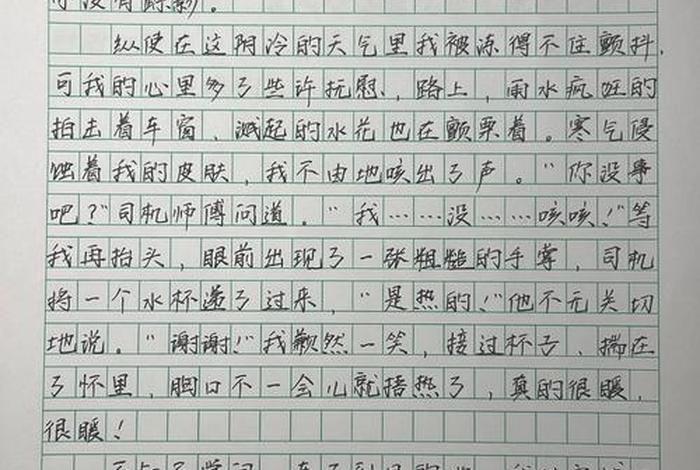 纵使在这阴冷的天气里我被冻得不住颤抖.
可我的心里多了些许抚慰.，路上，雨水疯狂的
拍击着车窗、溅起的水花也在颤栗着。寒气侵
蚀着我的皮肤，我不由地咳出了声。“你没事
吧？”司机师傅问道。“我……没……咳咳！”等
我再抬头，眼前出现了一张粗糙的手掌，司机
将一个水杯递了过来，“是热的！”他不无关切
地说。“谢谢！”我歉然一笑，接过杯子、揣在
了怀里，胸口不一会儿就捂热了，真的很暖，
很暖！